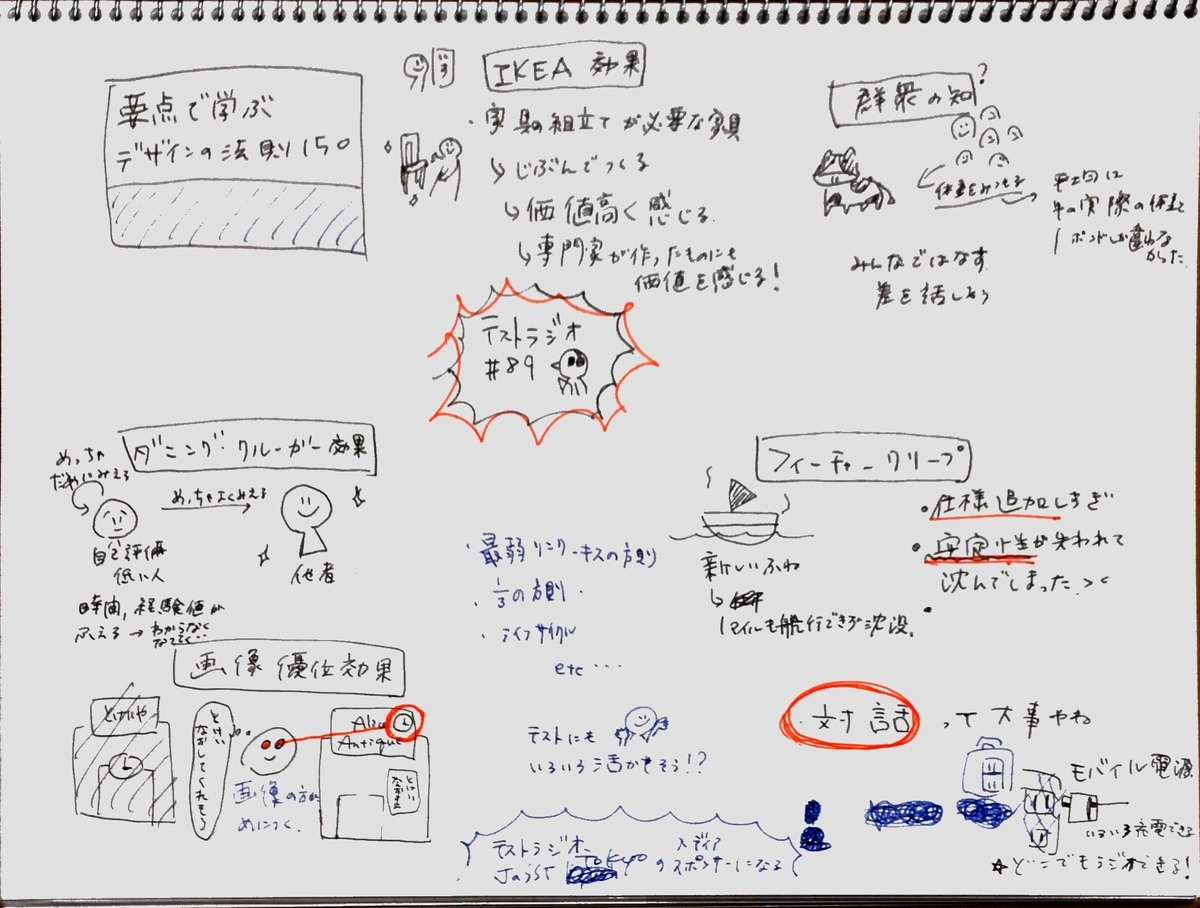 要点で学ぶ
デザインの法則150
IKEA 効果
・家具の組立てが必要な家具
↳じぶんでつくる
↳価値高く感じる
↳専門家が作ったものにも
価値を感じる!
群衆の知?
体重をみつもる
平均は
牛の実際の体重と
1ポンドしか違わな
かった
みんなではなす
差を話しあう
テストラジオ
#89
ダニング・クルーガー効果
めっちゃ
だめにみえる
めっちゃよくみえる
自己評価
低い人
他者
時間,経験値が
ふえる→わからなく
なってく‥
フィーチャークリープ
・仕様追加しすぎ
・安定性が失われて
沈んでしまった ><
新しいふね
↳
1マイルも航行できず沈没。
・最弱リンク・キスの方則
・1/3の方則・
・ライフサイクル
etc…
画像優位効果
とけいや
とけい
なおしてくれそう
Alice
Antique
とけい
なおすよ
画像の方が
めにつく。
テストにも
いろいろ活かせそう!?
対話って大事やね
モバイル電源
いろいろ充電できる
☆どこでもラジオできる!
テストラジオ、
メディア
JaSST TOKYOのスポンサーになる